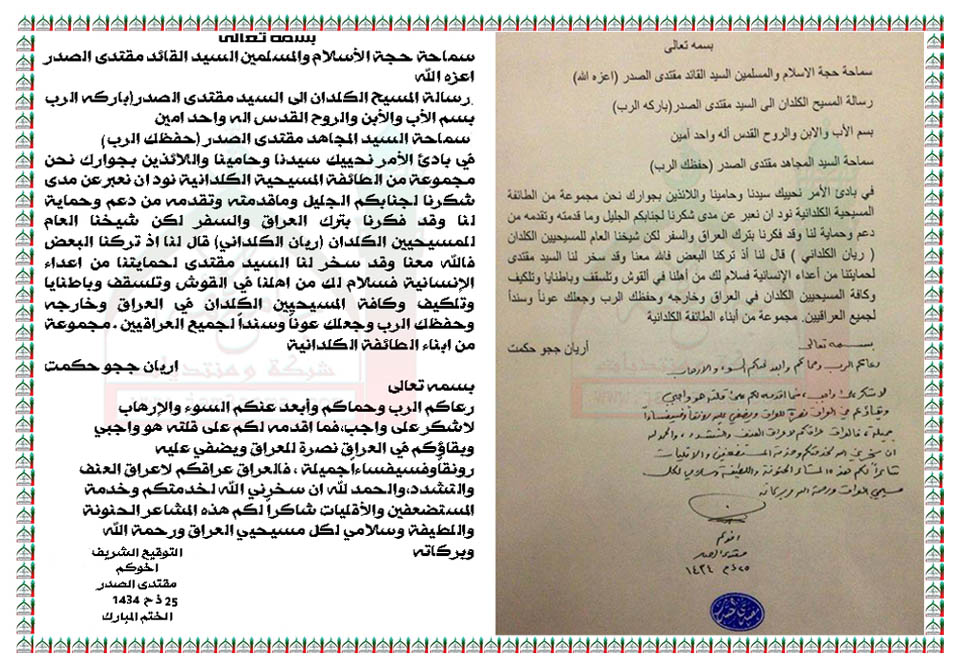 بسمه تعالى
سماحة حجة الاسلام والمسلمين السيد القائد مقتدى الصدر (اعزه الله)
رسالة المسيح الكلدان الى السيد مقتدى الصدر(باركه الرب)
بسم الأب والابن والروح القدس أله واحد آمين
سماحة السيد المجاهد مقتدى الصدر (حفظك الرب)
في بادئ الأمر نحييك سيدنا وحامينا واللائذين بجوارك نحن مجموعة من الطائفة
المسيحية الكلدانية نود ان نعبر عن مدى شكرنا لجنابكم الجليل وما قدمته وتقدمه من
دعم وحماية لنا وقد فكرنا بترك العراق والسفر لكن شيخنا العام للمسيحيين الكلدان
( ريان الكلداني ) قال لنا أذ تركنا البعض فالله معنا وقد سخر لنا السيد مقتدى
لحمايتنا من أعداء الإنسانية فسلام لك من أهلنا في ألقوش وتلسقف وباطنايا وتلكيف
وكافة المسيحيين الكلدان في العراق وخارجه وحفظك الرب وجعلك عوناً وسنداً
لجميع العراقيين. مجموعة من أبناء الطائفة الكلدانية
أريان ججو حكمت
بسمه تعالى
رعاكم الرب وحماكم وابعد عنكم السوء والارهاب
لا شكر على واجب، فما اقدمه لكم على قلته هو واجبي
وبقاؤكم في العراق نصرة للعراق ويضفي عليه رونقاً وفسيفساءاً
جميلة، فالعراق عراقكم لا عراق العنف والتشدد، والحمد لله
ان سخرني الله لخدمتكم وخدمة المستضعفين والاقليات
شاكراً لكم هذه المشاعر الحنونة واللطيفة وسلامي لكل
مسيحيي العراق ورحمة الله وبركاته
اخوكم
مقتدى الصدر
٢٥ ذ ح ١٤٣٤
بسمه تعالى
سماحة حجة الأسلام والمسلمين السيد القائد مقتدى الصدر
اعزه الله
رسالة المسيح الكلدان الى السيد مقتدى الصدر(باركه الرب
بسم الأب والأبن والروح القدس اله واحد امين
سماحة السيد المجاهد مقتدى الصدر (حفظك الرب)
في بادئ الأمر نحييك سيدنا وحامينا واللائذين بجوارك نحن
مجموعة من الطائفة المسيحية الكلدانية نود ان نعبر عن مدى
شكرنا لجنابكم الجليل وماقدمته وتقدمه من دعم وحماية
لنا وقد فكرنا بترك العراق والسفر لكن شيخنا العام
للمسيحيين الكلدان (ريان الكلداني) قال لنا اذ تركنا البعض
فالله معنا وقد سخر لنا السيد مقتدى لحمايتنا من اعداء
الإنسانية فسلام لك من اهلنا في القوش وتلسقف وباطنايا
وتلكيف وكافة المسيحيين الكلدان في العراق وخارجه
وحفظك الرب وجعلك عوناً وسنداً لجميع العراقيين . مجموعة
من ابناء الطائفة الكلدانية
اريان ججو حكمت
بسمه تعالى
رعاكم الرب وحماكم وأبعد عنكم السوء والإرهاب
لاشكر على واجب،فما اقدمه لكم على قلته هو واجبي
وبقاؤكم في العراق نصرة للعراق ويضفي عليه
رونقاًوفسيفساءاًجميلة ، فالعراق عراقكم لاعراق العنف
والتشدد،والحمد لله ان سخرني الله لخدمتكم وخدمة
المستضعفين والأقليات شاكراً لكم هذه المشاعر الحنونة
واللطيفة وسلامي لكل مسيحيي العراق ورحمة الله
وبركاته
التوقيع الشريف
اخوكم
مقتدى الصدر
25 ذ ح 1434
الختم المبارك
شركة ومنتديات